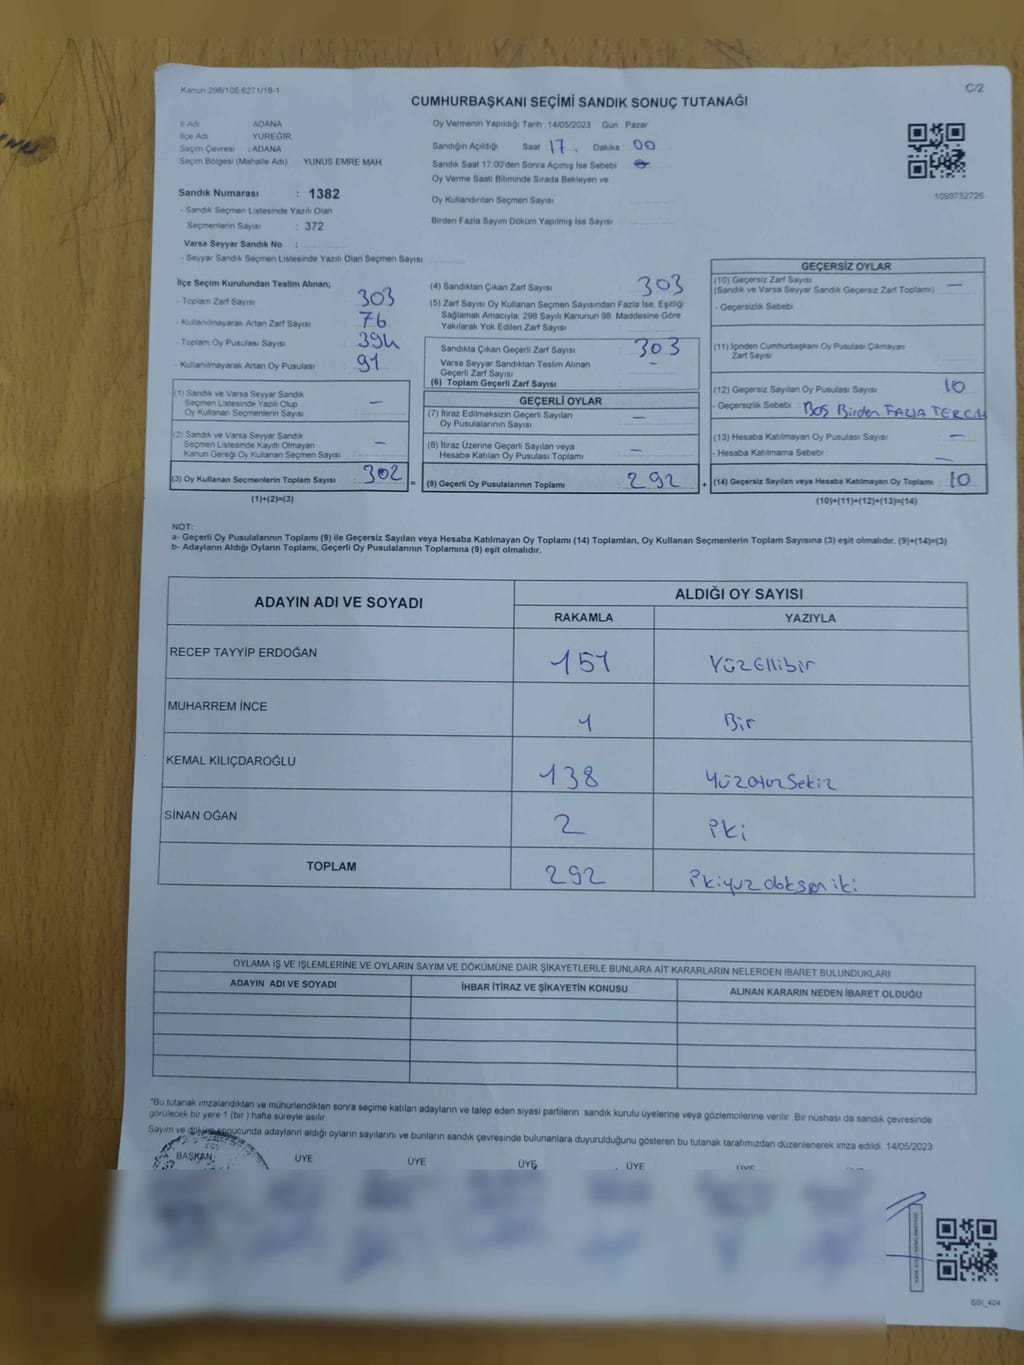 Kanun:298/105 6271/18-1
C/2
CUMHURBAŞKANI SEÇİMİ SANDIK SONUÇ TUTANAĞI
İl Adı ADANA
İlçe Adı YÜREĞİR
Seçim Çevresi : ADANA
Seçim Bölgesi (Mahalle Adı) YUNUS EMRE MAH
Sandık Numarası : 1382
- Sandık Seçmen Listesinde Yazılı Olan
Seçmenlerin Sayısı : 372
Varsa Seyyar Sandık No :
- Seyyar Sandık Seçmen Listesinde Yazılı Olan Seçmen Sayısı
Oy Vermenin Yapıldığı Tarih : 14/05/2023 Gün : Pazar
Sandığın Açıldığı Saat 17 Dakika 00
Sandık Saat 17:00'den Sonra Açımış İse Sebebi
Oy Verme Saati Bitiminde Sırada Bekleyen ve
Oy Kullandırılan Seçmen Sayısı
Birden Fazla Sayım Döküm Yapılmış İse Sayısı
1093752726
İlçe Seçim Kurulundan Teslim Alınan;
- Toplam Zarf Sayısı 303
- Kullanılmayarak Artan Zarf Sayısı 76
- Toplam Oy Pusulası Sayısı 394
- Kullanılmayarak Artan Oy Pusulası 91
(1) Sandık ve Varsa Seyyar Sandık
Seçmen Listesinde Yazılı Olup
Oy Kullanan Seçmenlerin Sayısı —
(2) Sandık ve Varsa Seyyar Sandık
Seçmen Listesinde Kayıtlı Olmayan
Kanun Gereği Oy Kullanan Seçmen Sayısı —
(3) Oy Kullanan Seçmenlerin Toplam Sayısı 302 =
(1)+(2)=(3)
(4) Sandıktan Çıkan Zarf Sayısı 303
(5) Zarf Sayısı Oy Kullanan Seçmen Sayısından Fazla İse, Eşitliği
Sağlamak Amacıyla; 298 Sayılı Kanunun 98. Maddesine Göre
Yakılarak Yok Edilen Zarf Sayısı
Sandıkta Çıkan Geçerli Zarf Sayısı 303
Varsa Seyyar Sandıktan Teslim Alınan
Geçerli Zarf Sayısı –
(6) Toplam Geçerli Zarf Sayısı
GEÇERLİ OYLAR
(7) İtiraz Edilmeksizin Geçerli Sayılan
Oy Pusulalarının Sayısı —
(8) İtiraz Üzerine Geçerli Sayılan veya
Hesaba Katılan Oy Pusulası Toplamı —
(9) Geçerli Oy Pusulalarının Toplamı 292 +
GEÇERSİZ OYLAR
(10) Geçersiz Zarf Sayısı —
(Sandık ve Varsa Seyyar Sandık Geçersiz Zarf Toplamı)
- Geçersizlik Sebebi
(11) İçinden Cumhurbaşkanı Oy Pusulası Çıkmayan
Zarf Sayısı
(12) Geçersiz Sayılan Oy Pusulası Sayısı 10
- Geçersizlik Sebebi Boş Birden FAZLA TERCİH
(13) Hesaba Katılmayan Oy Pusulası Sayısı —
- Hesaba Katılmama Sebebi : —
(14) Geçersiz Sayılan veya Hesaba Katılmayan Oy Toplamı 10
(10)+(11)+(12)+(13)=(14)
NOT:
a- Geçerli Oy Pusulalarının Toplamı (9) ile Geçersiz Sayılan veya Hesaba Katılmayan Oy Toplamı (14) Toplamları, Oy Kullanan Seçmenlerin Toplam Sayısına (3) eşit olmalıdır. (9)+(14)=(3)
b- Adayların Aldığı Oyların Toplamı, Geçerli Oy Pusulalarının Toplamına (9) eşit olmalıdır.
ADAYIN ADI VE SOYADI
ALDIĞI OY SAYISI
RAKAMLA YAZIYLA
RECEP TAYYİP ERDOĞAN 151 Yüzellibir
MUHARREM İNCE 1 Bir
KEMAL KILIÇDAROĞLU 138 YüzotuzSekiz
SİNAN OĞAN 2 İki
TOPLAM 292 İkiyüz doksan iki
OYLAMA İŞ VE İŞLEMLERİNE VE OYLARIN SAYIM VE DÖKÜMÜNE DAİR ŞİKAYETLERLE BUNLARA AİT KARARLARIN NELERDEN İBARET BULUNDUKLARI
ADAYIN ADI VE SOYADI İHBAR İTİRAZ VE ŞİKAYETİN KONUSU ALINAN KARARIN NEDEN İBARET OLDUĞU
*Bu tutanak imzalandıktan ve mühürlendikten sonra seçime katılan adayların ve talep eden siyasi partilerin sandık kurulu üyelerine veya gözlemcilerine verilir. Bir nüshası da sandık çevresinde
görülecek bir yere 1 (bir ) hafta süreyle asılır.
Sayım ve döküm sonucunda adayların aldığı oyların sayılarını ve bunların sandık çevresinde bulunanlara duyurulduğunu gösteren bu tutanak tarafımızdan düzenlenerek imza edildi. 14/05/2023
BAŞKAN ÜYE ÜYE ÜYE ÜYE ÜYE